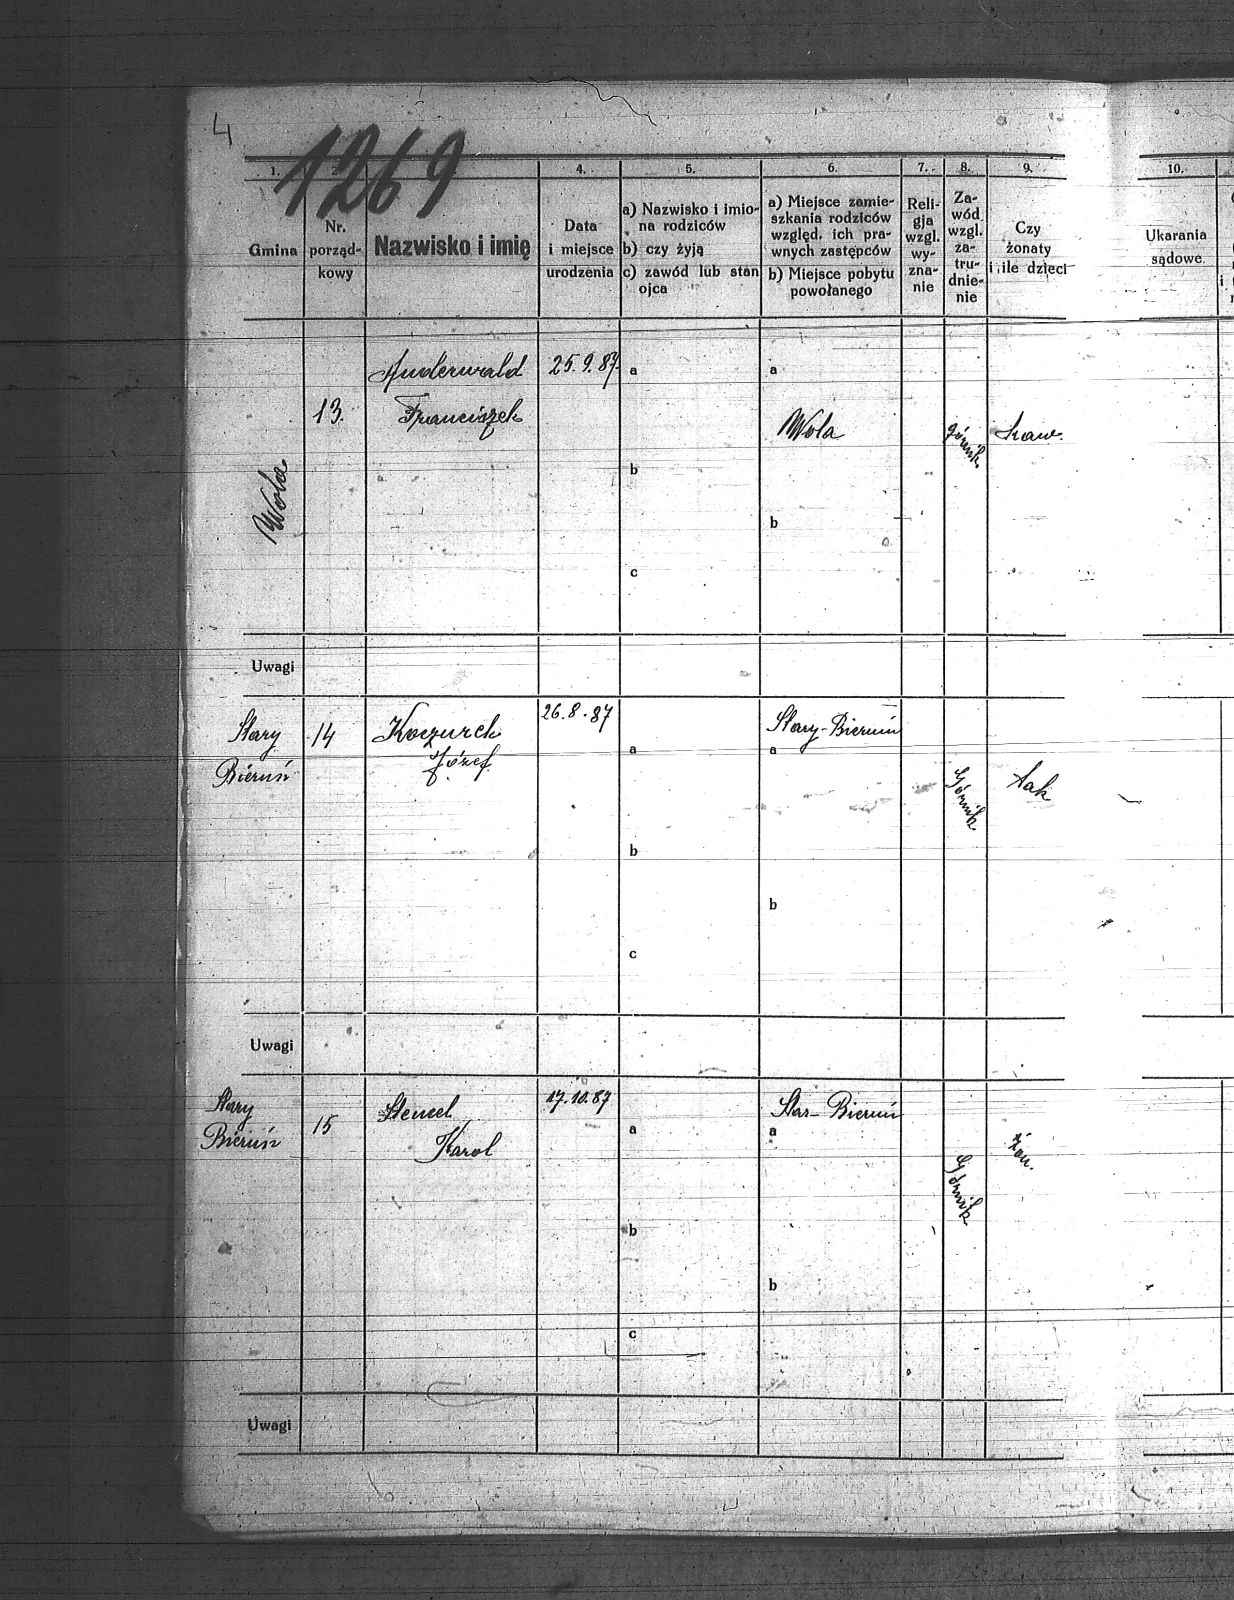 4
1269
1. 2. 4. 5. 6. 7. 8. 9. 10.
Gmina
Nr. porząd-
kowy
Nazwisko i imię
Data
i miejsce
urodzenia
a) Nazwisko i imio-
na rodziców
b) czy żyją
c) zawód lub stan
ojca
a) Miejsce zamie-
szkania rodziców
względ. ich pra-
wnych zastępców
b) Miejsce pobytu
powołanego
Reli-
gja
wzgl.
wy-
zna-
nie
Za-
wód
wzgl.
za-
tru-
dnie-
nie
Czy
żonaty
i ile dzieci
Ukarania
sądowe
Wola
13.
Anderwald
Franciszek
25.9.87.
a
b
c
a
Wola
b
górnik
kaw.
Uwagi
Stary
Bieruń
14
Koczurek
Józef
26.8.87
a
b
c
Stary-Bieruń
a
b
Górnik
tak
Uwagi
Stary
Bieruń
15
Stencel
Karol
17.10.87
a
b
c
Star-Bieruń
a
b
Górnik
żon.
Uwagi